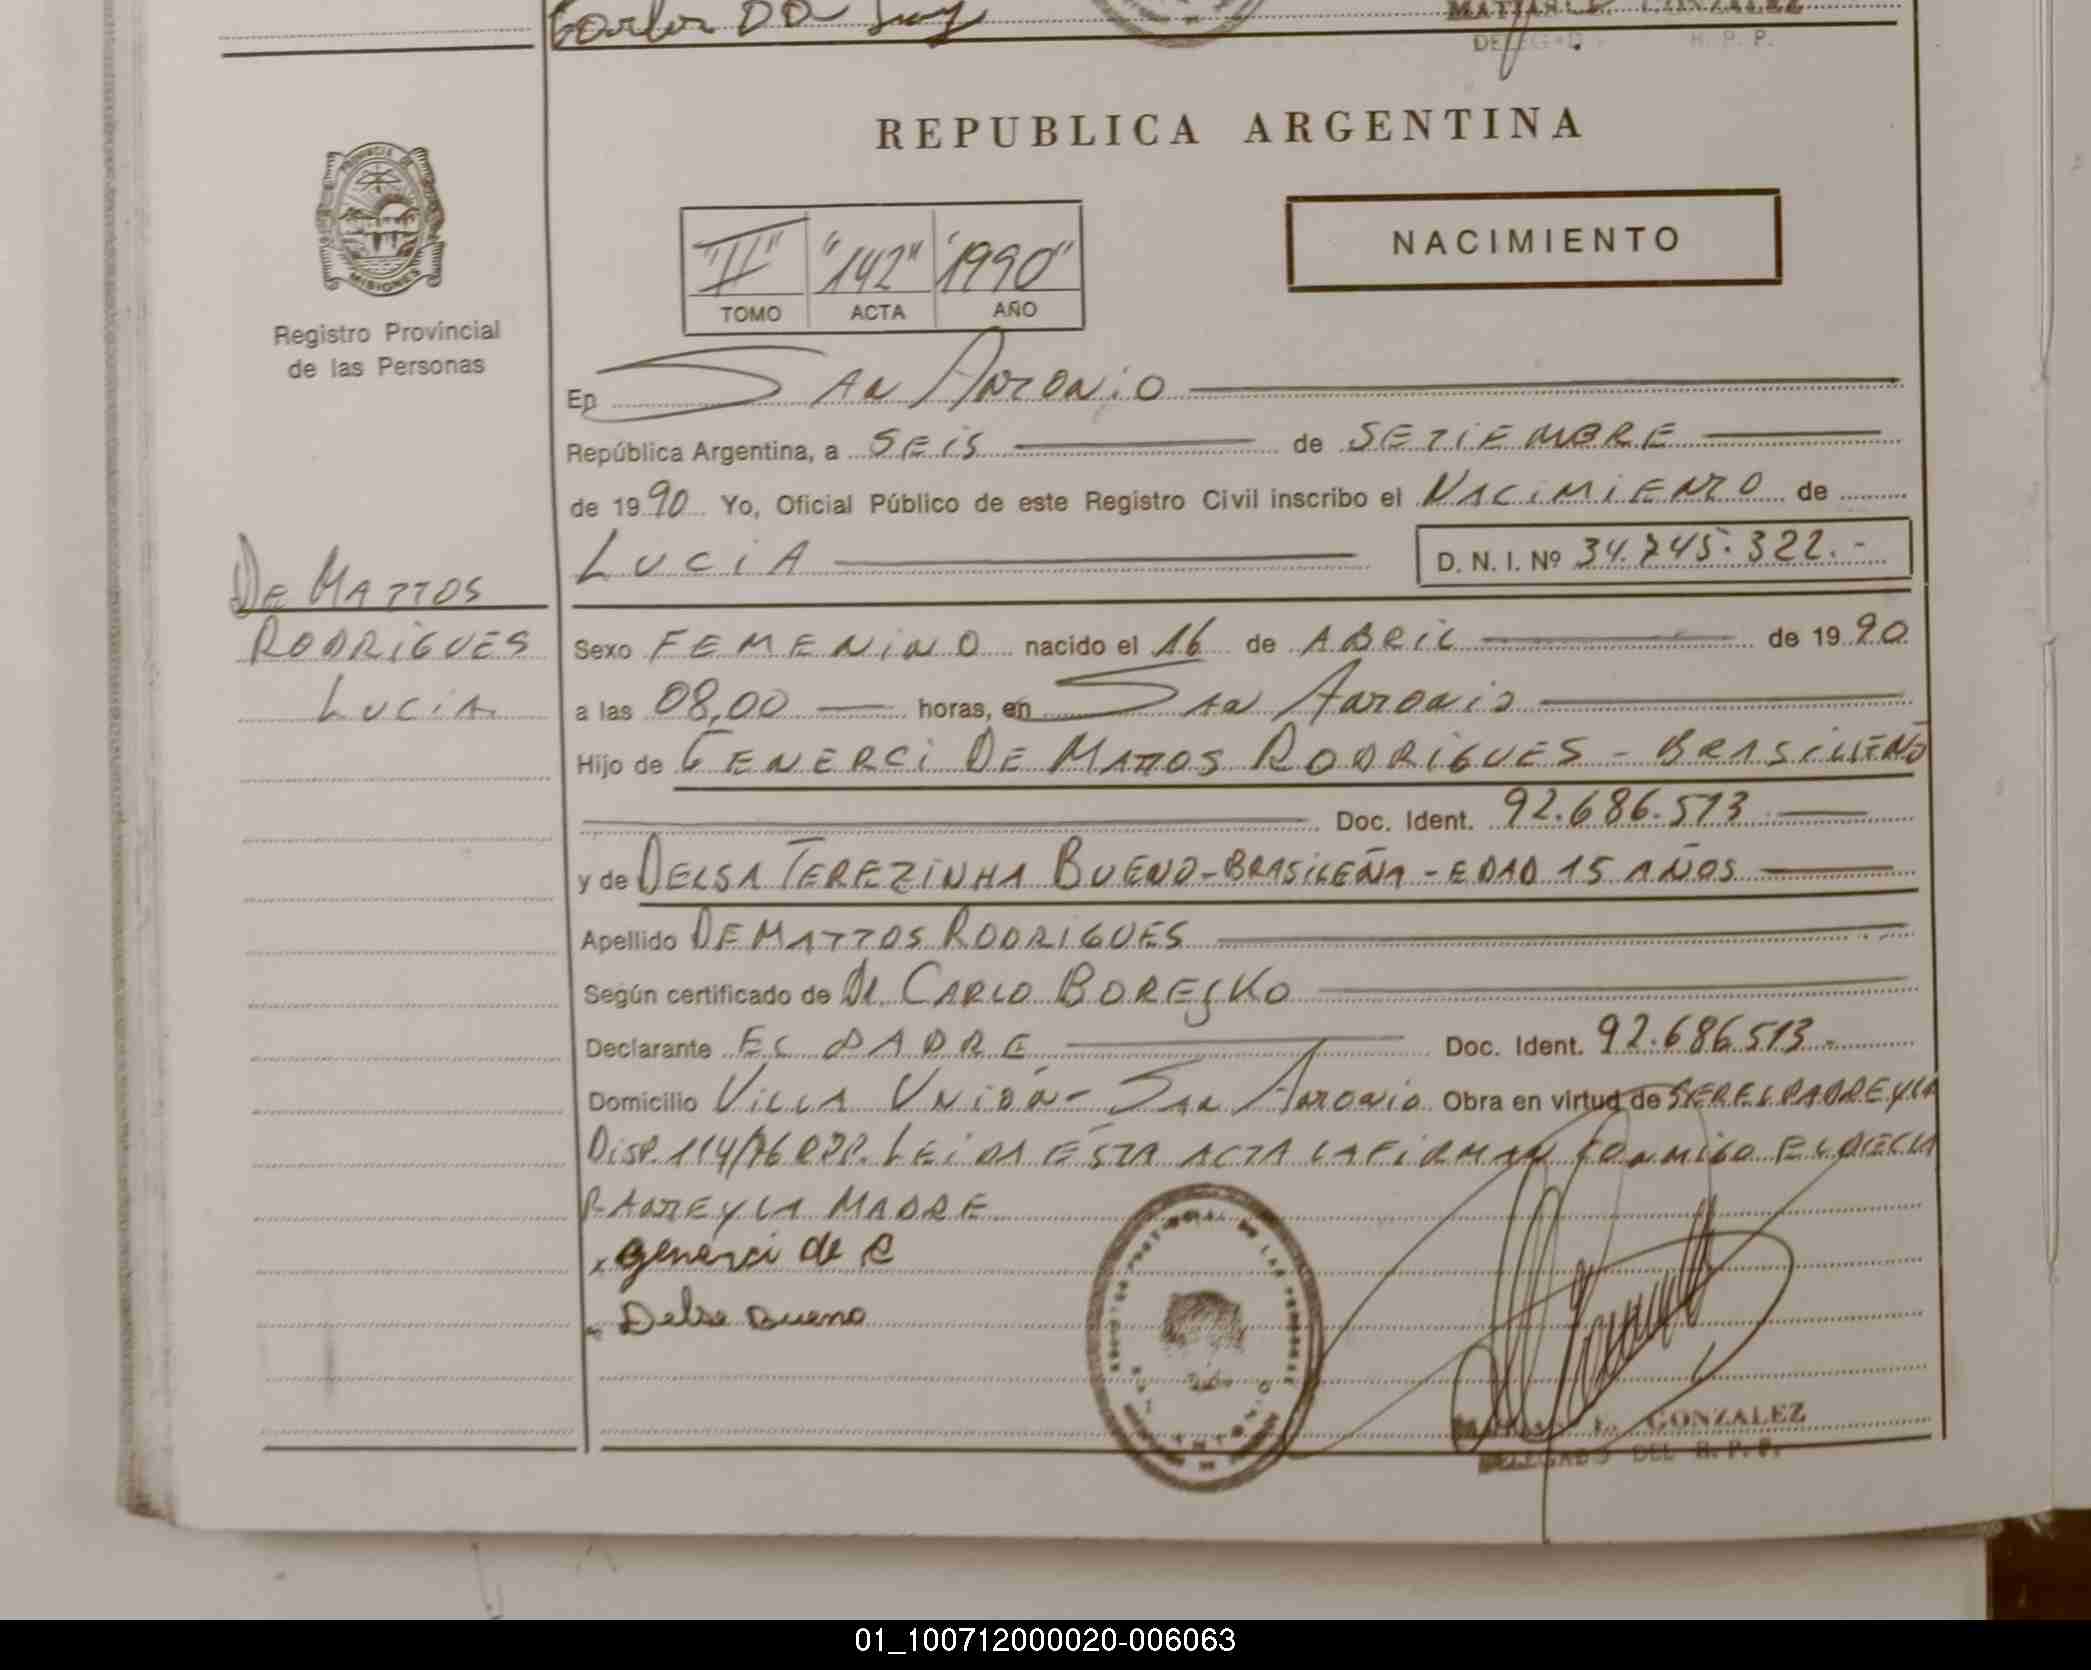 Carlos
DELEGADO R. P. P.
REPUBLICA ARGENTINA
PROVINCIA DE MISIONES
NACIMIENTO
"II" "142" "1990"
TOMO ACTA AÑO
Registro Provincial
de las Personas
En SAN ANTONIO
República Argentina, a SEIS de SETIEMBRE
de 1990 Yo, Oficial Público de este Registro Civil inscribo el NACIMIENTO de
LUCIA D. N. I. Nº 34.745.322.-
DE MATTOS
RODRIGUES
LUCIA
Sexo FEMENINO nacido el 16 de ABRIL de 1990
a las 08,00 horas, en SAN ANTONIO
Hijo de GENERCI DE MATTOS RODRIGUES - BRASILEÑO
Doc. Ident. 92.686.513
y de DELSA TEREZINHA BUENO-BRASILEÑA - EDAD 15 AÑOS
Apellido DE MATTOS RODRIGUES
Según certificado de Dr. CARLO BORESKO
Declarante EL PADRE Doc. Ident. 92.686.513.-
Domicilio VILLA UNIÓN- SAN ANTONIO Obra en virtud de SER EL PADRE Y LA
DISP. 114/76 RPP. LEIDA ESTA ACTA LA FIRMAN CONMIGO EL
PADRE Y LA MADRE
x generci de R
x Delsa Bueno
GONZALEZ
DELEGADO DEL R. P. P.
01_100712000020-006063